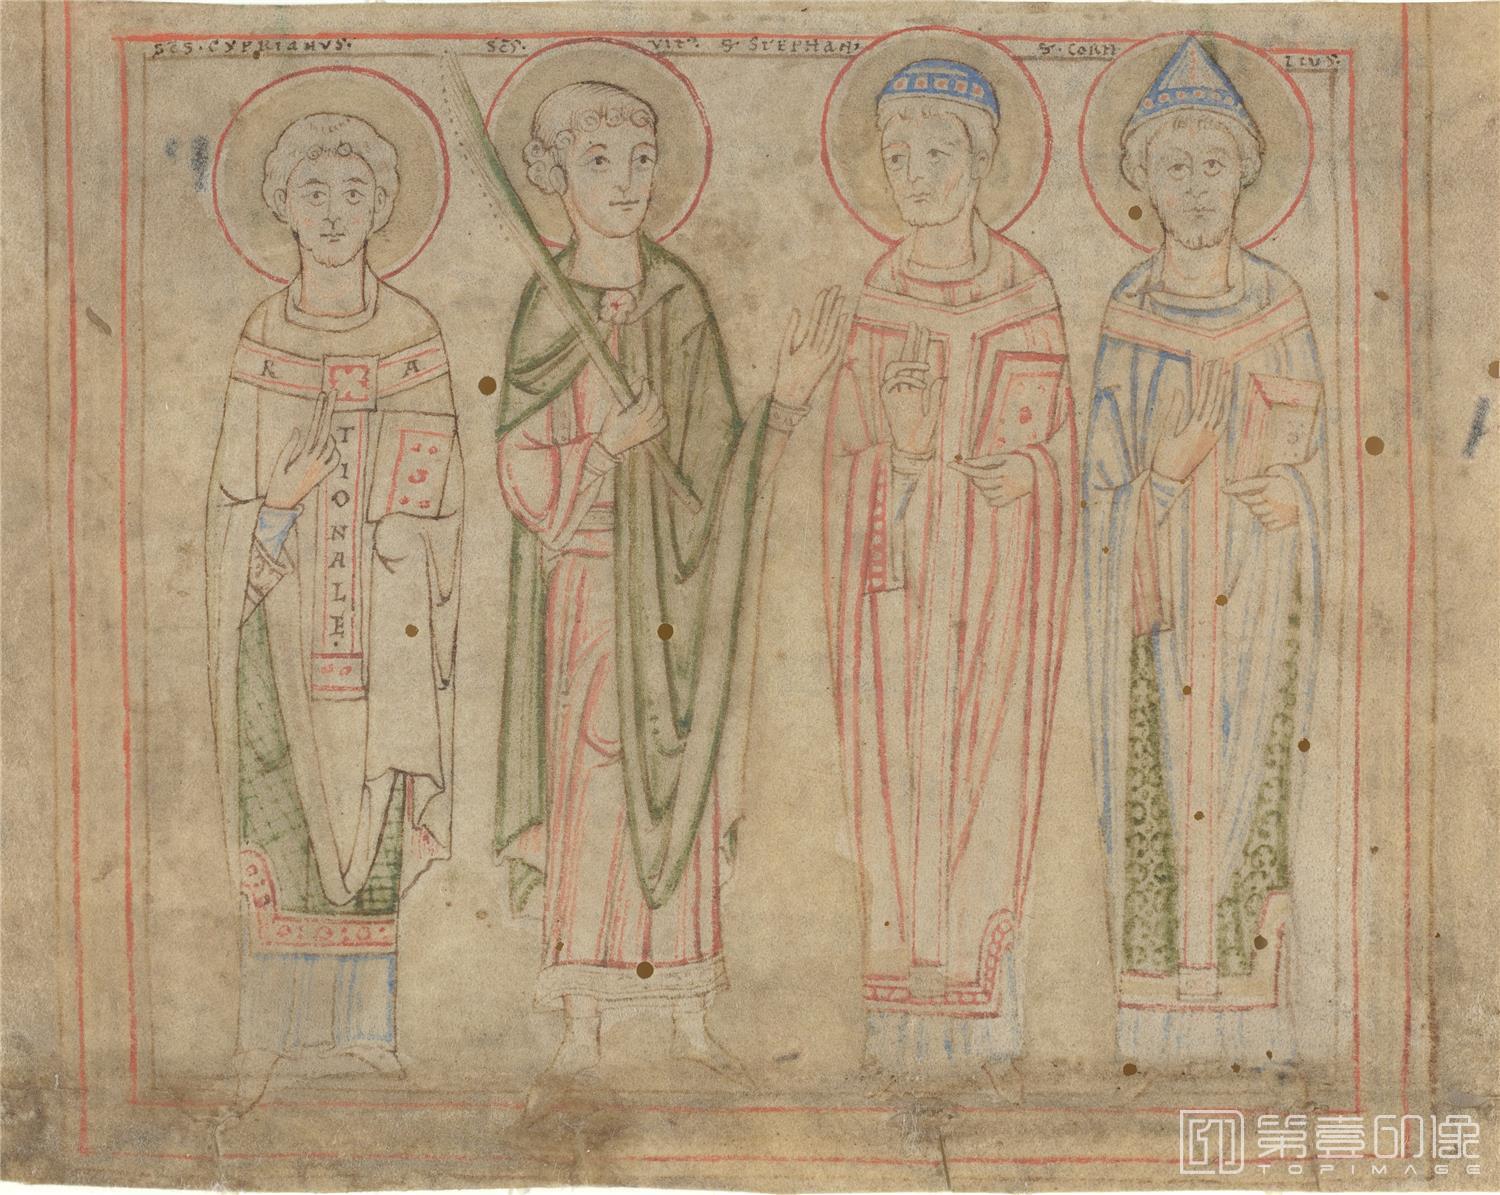 SCS. CYPRIANVS.
SCS. VIT9. S. STEPHAN9
S. CORN
LIVS.
R A
TIONALE.
第壹印像
TOPIMAGE